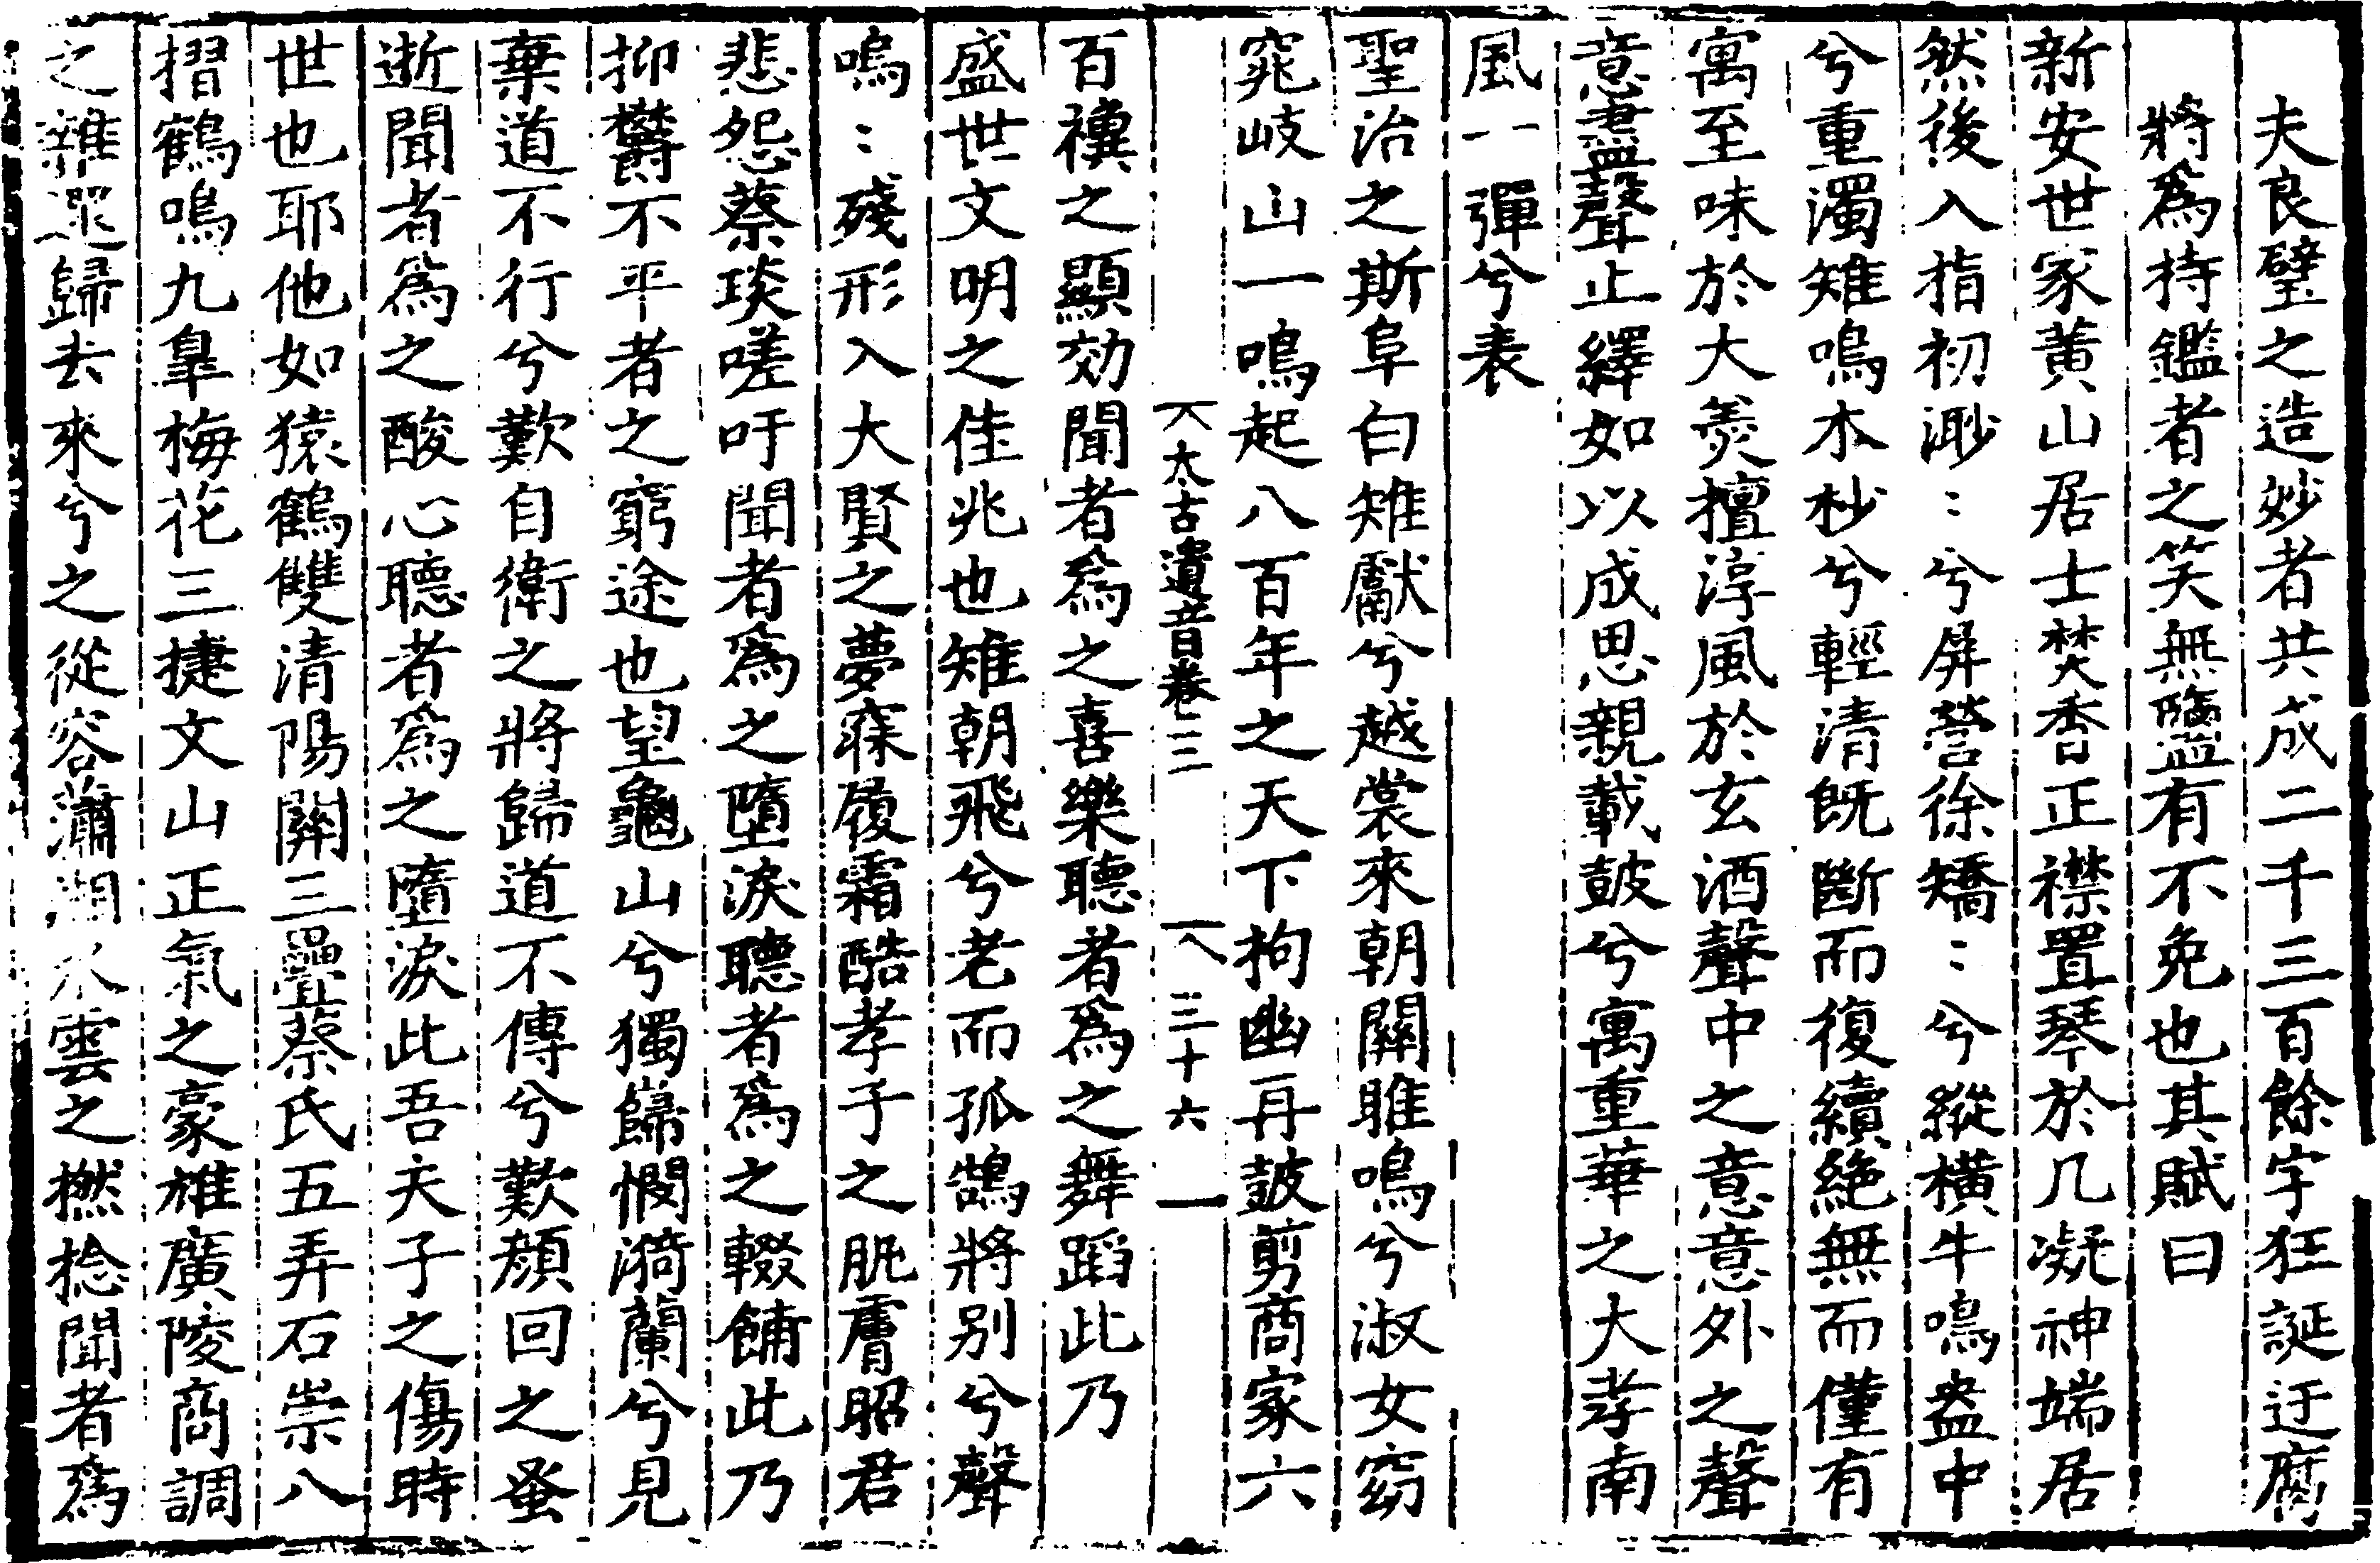 夫良璧之造妙者共成二千三百餘字狂誕迂腐
將爲持鑑者之笑無鹽有不免也其賦曰
新安世家黃山居士焚香正襟置琴於几凝神端居
然後入指初渺〻兮屏營徐矯〻兮縱橫牛鳴盎中
兮重濁雉鳴木杪兮輕清既斷而復續絶無而僅有
寓至味於大羹擅淳風於玄酒聲中之意意外之聲
意盡聲止繹如以成思親載鼓兮寓重華之大孝南
風一彈兮表
聖治之斯阜白雉獻兮越裳來朝關雎鳴兮淑女窈
窕岐山一鳴起八百年之天下拘幽再鼓剪商家六
太古遺音卷三 三十六
百禩之顯効聞者爲之喜樂聽者爲之舞蹈此乃
盛世文明之佳兆也雉朝飛兮老而孤鵠將别兮聲
嗚〻殘形入大賢之夢寐履霜酷孝子之肌膚昭君
悲怨蔡琰嗟吁聞者爲之墮淚聽者爲之輟餔此乃
抑欝不平者之窮途也望龜山兮獨歸憫漪蘭兮見
棄道不行兮歎自衛之將歸道不傳兮歎顏回之蚤
逝聞者爲之酸心聽者爲之墮淚此吾夫子之傷時
世也耶他如猿鶴雙清陽關三疊蔡氏五弄石崇八
摺鶴鳴九臯梅花三捷文山正氣之豪雄廣陵商調
之雜遝歸去來兮之從容瀟湘水雲之撚捻聞者爲